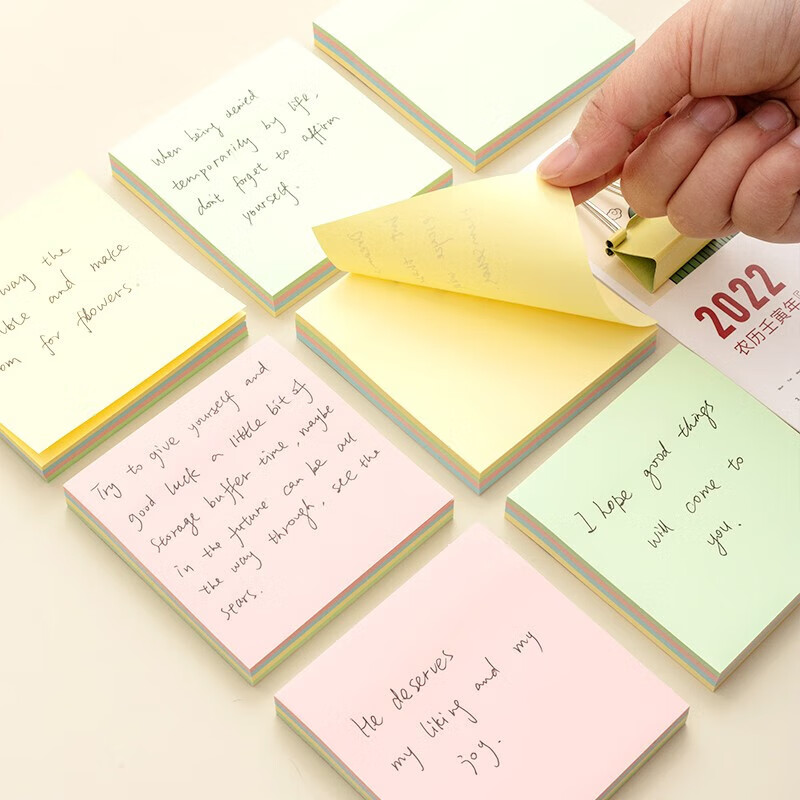 When being denied
temporarily by life,
dont forget to affirm
yourself.
way the
and make
for flowers.
Try to give yourself and
good luck a little bit of
storage buffer time, maybe
in the future can be all
the way through, see the
stars.
2022
农历壬寅年
I hope good things
will come to
you.
He deserves
my liking and my
joy.